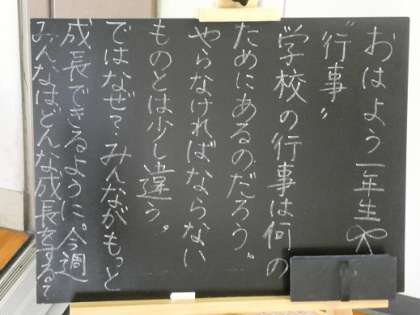 おはよう一年生
"行事"
学校の行事は何の
ためにあるのだろう。
やらなければならない
ものとは少し違う。
ではなぜ?みんながもっと
成長できるように。今週
みんなはどんな成長をする?